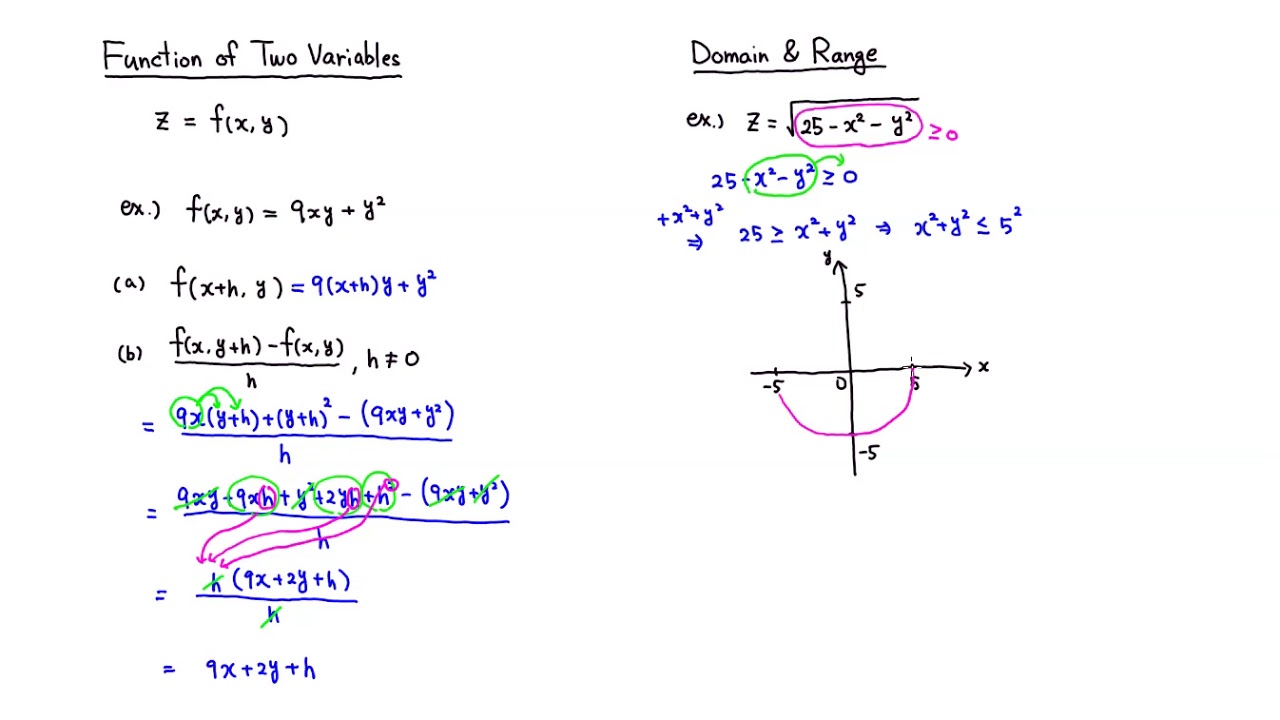 Function of Two Variables
z = f(x, y)
ex.) f(x, y) = 9xy + y²
(a) f(x+h, y) = 9(x+h)y + y²
(b) f(x, y+h) - f(x, y)
h
, h ≠ 0
= 9x(y+h) + (y+h)² - (9xy + y²)
h
= 9xy + 9xh + y² + 2yh + h² - (9xy + y²)
h
= h(9x + 2y + h)
h
= 9x + 2y + h
Domain & Range
ex.) z = √25 - x² - y² ≥ 0
25 - x² - y² ≥ 0
+x²+y²
⇒ 25 ≥ x² + y² ⇒ x² + y² ≤ 5²
y
5
-5 0 5 x
-5